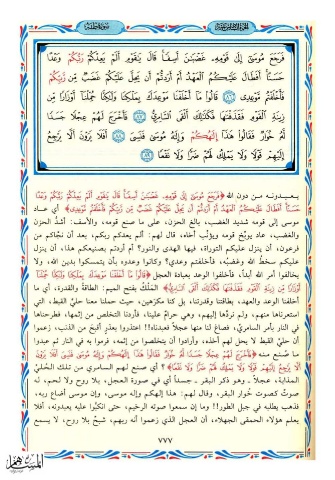 الجزء السادس عشر
سورة طه
فَرَجَعَ مُوسَىٰٓ إِلَىٰ قَوْمِهِۦ غَضْبَٰنَ أَسِفًا قَالَ يَٰقَوْمِ أَلَمْ يَعِدْكُمْ رَبُّكُمْ وَعْدًا
حَسَنًا أَفَطَالَ عَلَيْكُمُ ٱلْعَهْدُ أَمْ أَرَدتُّمْ أَن يَحِلَّ عَلَيْكُمْ غَضَبٌ مِّن رَّبِّكُمْ
فَأَخْلَفْتُم مَّوْعِدِى ٨٦ قَالُوا۟ مَآ أَخْلَفْنَا مَوْعِدَكَ بِمَلْكِنَا وَلَٰكِنَّا حُمِّلْنَآ أَوْزَارًا مِّن
زِينَةِ ٱلْقَوْمِ فَقَذَفْنَٰهَا فَكَذَٰلِكَ أَلْقَى ٱلسَّامِرِىُّ ٨٧ فَأَخْرَجَ لَهُمْ عِجْلًا جَسَدًا
لَّهُۥ خُوَارٌ فَقَالُوا۟ هَٰذَآ إِلَٰهُكُمْ وَإِلَٰهُ مُوسَىٰ فَنَسِىَ ٨٨ أَفَلَا يَرَوْنَ أَلَّا يَرْجِعُ
إِلَيْهِمْ قَوْلًا وَلَا يَمْلِكُ لَهُمْ ضَرًّا وَلَا نَفْعًا ٨٩
يـعـبـدونـه مـن دون الله ﴿فَرَجَعَ مُوسَىٰٓ إِلَىٰ قَوْمِهِۦ غَضْبَٰنَ أَسِفًا قَالَ يَٰقَوْمِ أَلَمْ يَعِدْكُمْ رَبُّكُمْ وَعْدًا
حَسَنًا أَفَطَالَ عَلَيْكُمُ ٱلْعَهْدُ أَمْ أَرَدتُّمْ أَن يَحِلَّ عَلَيْكُمْ غَضَبٌ مِّن رَّبِّكُمْ فَأَخْلَفْتُم مَّوْعِدِى﴾ أي عـاد
موسى إلى قومه شديد الغضب، بالغ الحزن، على ما صنع قومه، والأسف: أشدُّ الحزن
والغضب، عاد يوبِّخ قومه ويؤنِّب أخاه، قال لهم: ألم يعدكم ربكم، بعد أن نجاكم من
فرعون، أن ينزل عليكم التوراة، فيها الهدى والنور؟ أم أردتم بصنيعكم هذا، أن ينزل
عليكم سخط الله وغضبُه، فأخلفتم وعدي؟ وكانوا وعدوه بأن يتمسكوا بدين الله، ولا
يخالفوا أمر الله أبداً، فأخلفوا الوعد بعبادة العجل ﴿قَالُوا۟ مَآ أَخْلَفْنَا مَوْعِدَكَ بِمَلْكِنَا وَلَٰكِنَّا حُمِّلْنَآ
أَوْزَارًا مِّن زِينَةِ ٱلْقَوْمِ فَقَذَفْنَٰهَا فَكَذَٰلِكَ أَلْقَى ٱلسَّامِرِىُّ﴾ المَلْك بفتح الميم: الطاقةُ والقدرة، أي ما
أخلفنا الوعد والعهد، بطاقتنا وقدرتنا، بل كنا مكرَهين، حيث حملنا معنا حليَّ القبط، التي
استعرناها منهم، ولم نردَّها إليهم، وهي حرامٌ علينا، فأردنا التخلص من إثمها، فطرحناها
في النار بأمر السامريِّ، فصاغ لنا منها عجلاً فعبدناه!! اعتذروا بعذرٍ أقبحَ من الذنب، زعموا
أن حليَّ القبط لا يحل لهم أخذه، وأرادوا أن يتخلصوا من إثمه، فرموا به في النار ثم عبدوا
ما صُنع منه ﴿فَأَخْرَجَ لَهُمْ عِجْلًا جَسَدًا لَّهُۥ خُوَارٌ فَقَالُوا۟ هَٰذَآ إِلَٰهُكُمْ وَإِلَٰهُ مُوسَىٰ فَنَسِىَ أَفَلَا يَرَوْنَ
أَلَّا يَرْجِعُ إِلَيْهِمْ قَوْلًا وَلَا يَمْلِكُ لَهُمْ ضَرًّا وَلَا نَفْعًا﴾؟ أي صنع لهـم السامري من تـلـك الحُليِّ
المذابة، عجلاً ـ وهو ذكر البقر ـ جسداً أي في صورة العجل، بلا روح ولا لحم، له
صوتٌ كصوت خُوار البقر، وقال لهم: هذا إلهكم وإله موسى، وإن موسى أضاع ربه،
فذهب يطلبه في جبل الطور!! وما إن سمعوا صوته الرخيم، حتى انكبُّوا عليه يعبدونه، أفلا
يعلم هؤلاء الحمقى الجهلاء، أن العجل الذي زعموا أنه ربهم، شبحٌ بلا روح، لا يسمع
٧٧٧